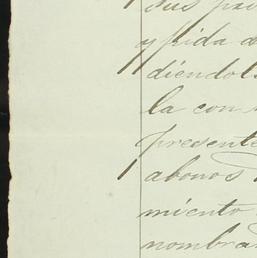 sus
y pida
diéndols
la con
presente
abonos
miento
nombra